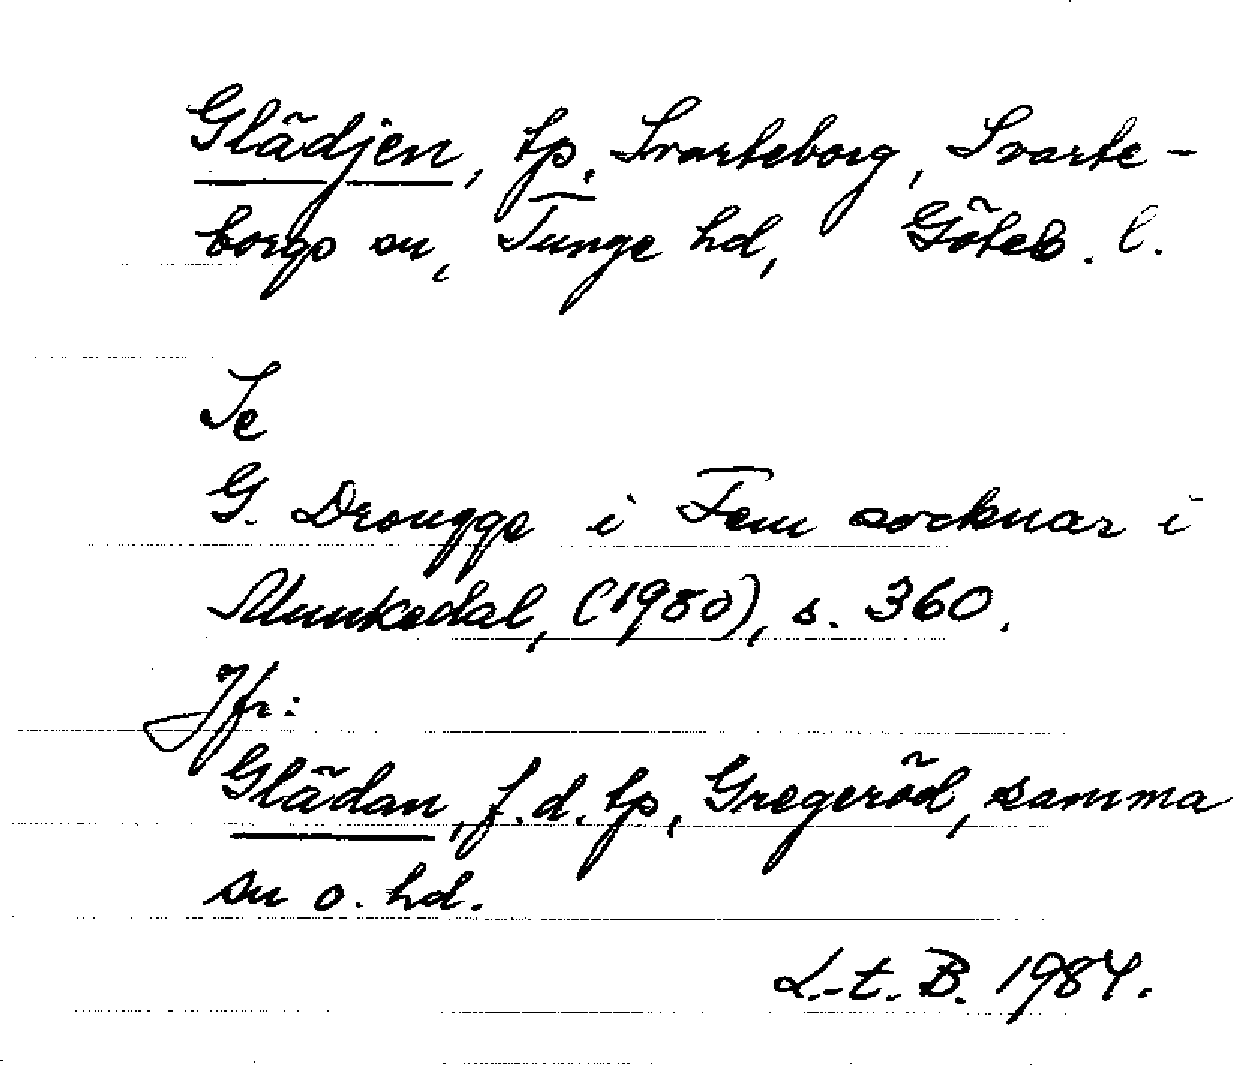 Glädjen, tp. Svarteborg, Svarte-
borgs sn, Tunge hd, Göteb. l.
Se
G. Drougge i Fem socknar i
Munkedal, (1980), s. 360.
Jfr:
Glädan, f.d. tp, Gregeröd, samma
sn o. hd.
L.-t. B. 1984.